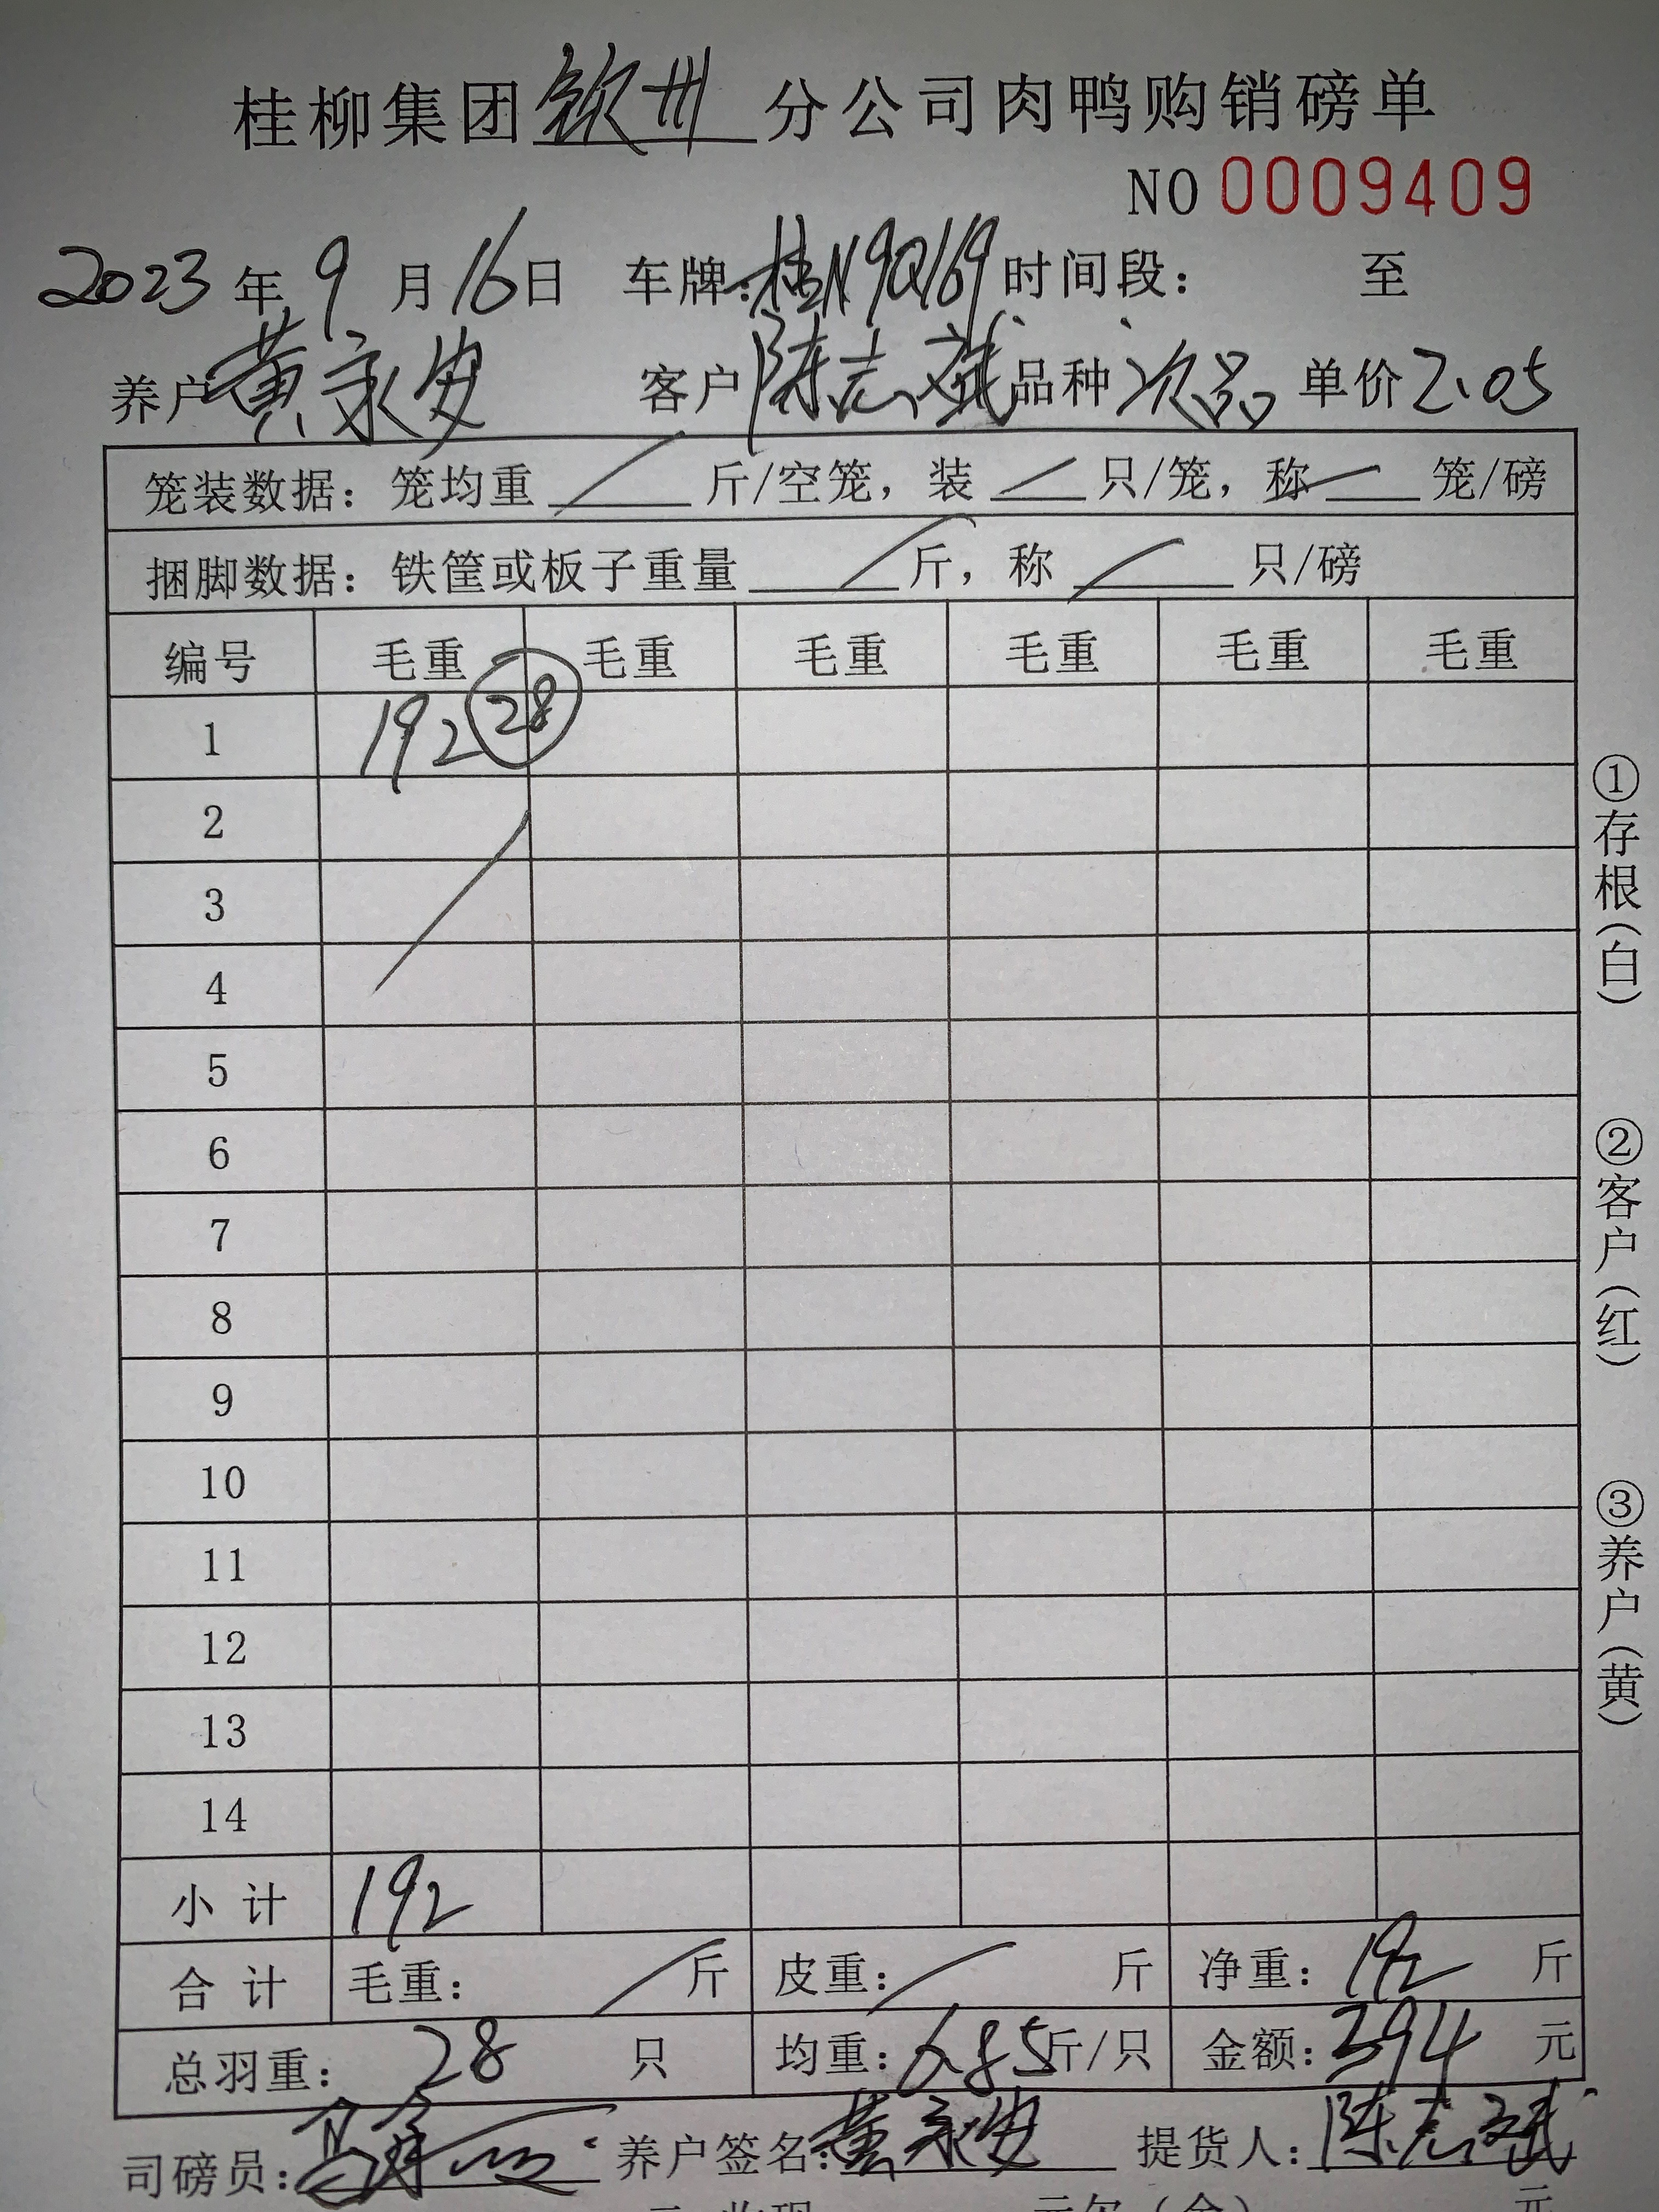 桂柳集团钦州分公司肉鸭购销磅单
NO 0009409
2023年9月16日 车牌:桂N9Q169 时间段: 至
养户 黄永安 客户 陈志斌 品种 次品 单价 2.05
笼装数据:笼均重 / 斤/空笼,装 / 只/笼,称 / 笼/磅
捆脚数据:铁筐或板子重量 / 斤,称 / 只/磅
编号 毛重 毛重 毛重 毛重 毛重 毛重
1 192 28
2
3
4
5
6
7
8
9
10
11
12
13
14
小计 192
合计 毛重: / 斤 皮重: / 斤 净重:192 斤
总羽重: 28 只 均重:6.85斤/只 金额:394 元
司磅员: 养户签名:黄永安 提货人:陈志斌
①存根(白)
②客户(红)
③养户(黄)